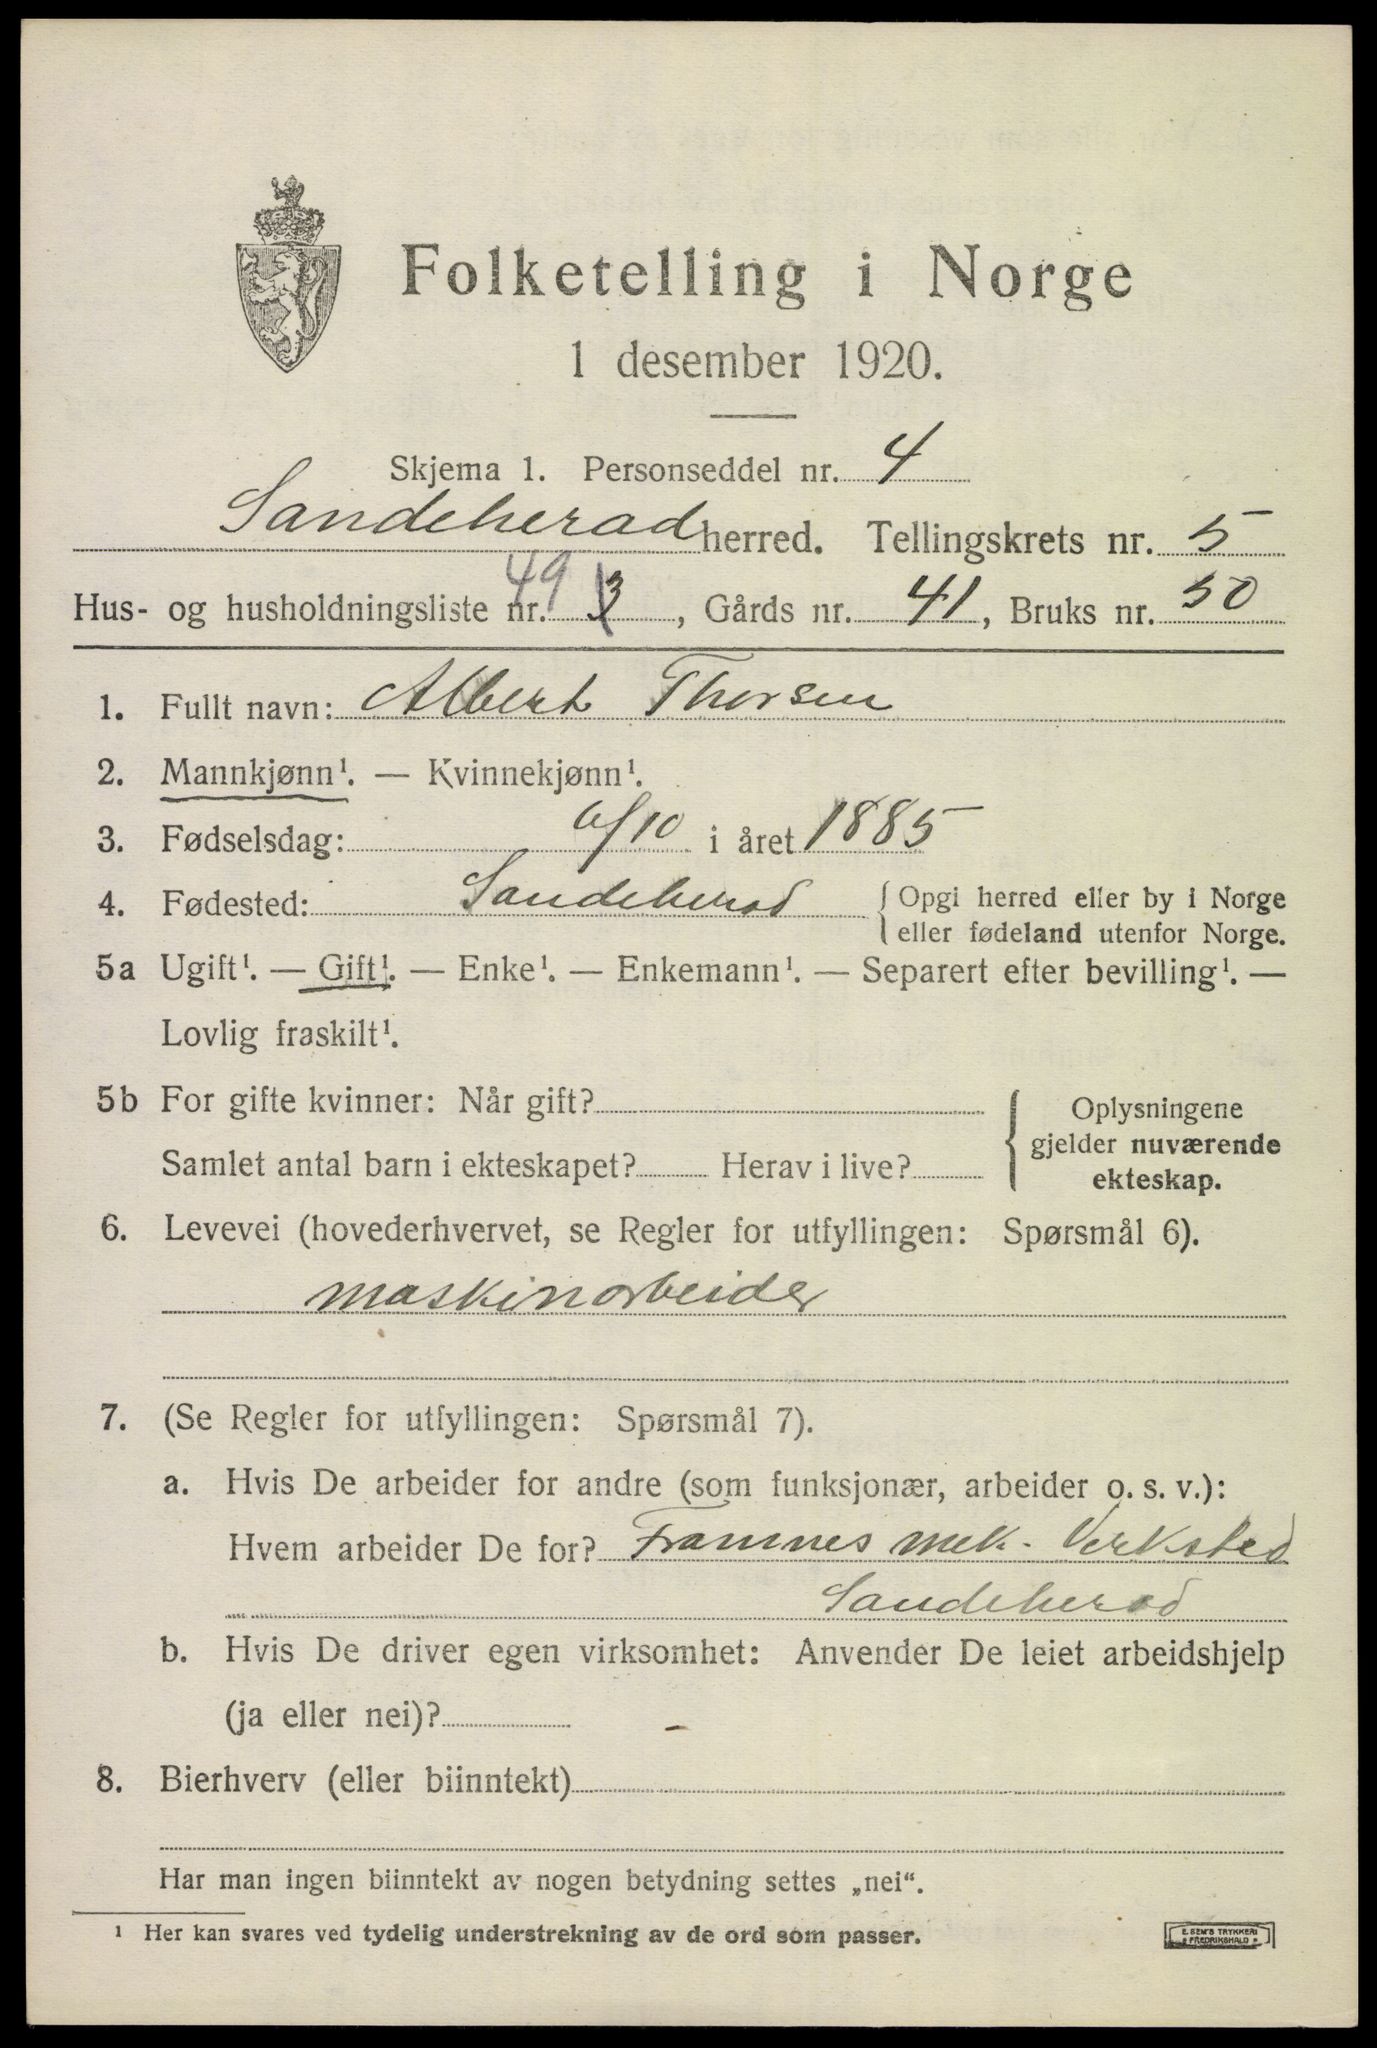 Folketelling i Norge
1 desember 1920.
Skjema 1. Personseddel nr. 4
Sandeherad herred. Tellingskrets nr. 5
Hus- og husholdningsliste nr. 49 3, Gårds nr. 41, Bruks nr. 50
1. Fullt navn: Albert Thorsen
2. Mannkjønn¹. — Kvinnekjønn¹.
3. Fødselsdag: 6/10 i året 1885
4. Fødested: Sandeherad { Opgi herred eller by i Norge
eller fødeland utenfor Norge.
5a Ugift¹. — Gift¹. — Enke¹. — Enkemann¹. — Separert efter bevilling¹. —
Lovlig fraskilt¹.
5b For gifte kvinner: Når gift?
Samlet antal barn i ekteskapet? Herav i live?
{ Oplysningene
gjelder nuværende
ekteskap.
6. Levevei (hovederhvervet, se Regler for utfyllingen: Spørsmål 6).
maskinarbeider
7. (Se Regler for utfyllingen: Spørsmål 7).
a. Hvis De arbeider for andre (som funksjonær, arbeider o. s. v.):
Hvem arbeider De for? Framnes mek. Verksted
Sandeherad
b. Hvis De driver egen virksomhet: Anvender De leiet arbeidshjelp
(ja eller nei)? -
8. Bierhverv (eller biinntekt)
Har man ingen biinntekt av nogen betydning settes „nei“.
¹ Her kan svares ved tydelig understrekning av de ord som passer.
E. SEM'S TRYKKERI
FREDRIKSHALD